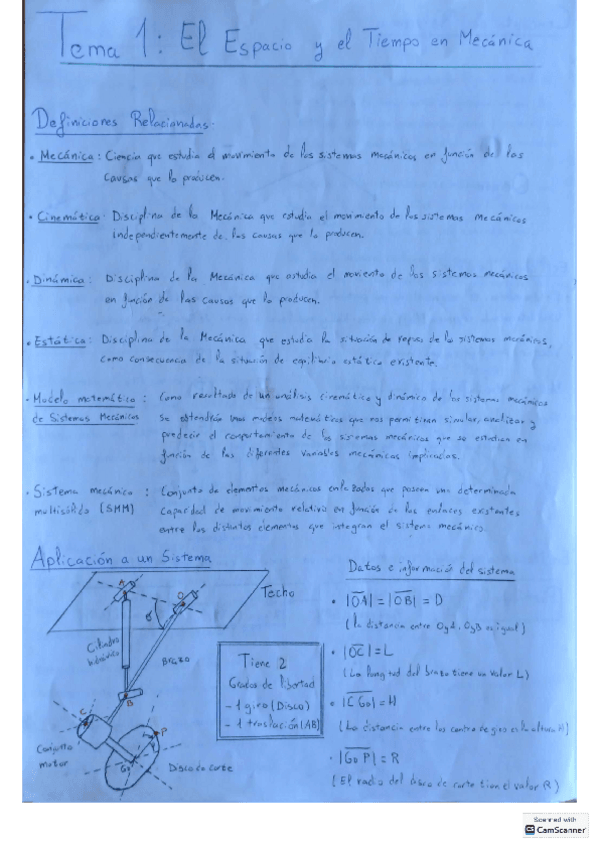 Tema 1: El Espacio y el Tiempo en Mecánica
Definiciones Relacionadas:
• Mecánica: Ciencia que estudia el movimiento de los sistemas mecánicos en función de las
causas que lo producen.
• Cinemática: Disciplina de la Mecánica que estudia el movimiento de los sistemas mecánicos
independientemente de las causas que lo producen.
• Dinámica: Disciplina de la Mecánica que estudia el moviento de los sistemas mecánicos
en función de las causas que lo producen.
• Estática: Disciplina de la Mecánica que estudia la situación de reposo de los sistemas mecánicos,
como consecuencia de la situación de equilibrio estático existente.
• Modelo matemático : Como resultado de un análisis cinemático y dinámico de los sistemas mecánicos
de Sistemas Mecánicos se obtendrán unos modelos matemáticos que nos permitiran simular, analizar y
predecir el comportamiento de los sistemas mecánicos que se estudian en
función de las diferentes variables mecánicas implicadas.
• Sistema mecánico : Conjunto de elementos mecánicos enlazados que poseen una determinada
multisólido (SMM) capacidad de movimiento relativo en función de los enlaces existentes
entre los distintos elementos que integran el sistema mecánico.
Aplicación a un Sistema
Techo
A
O
Cilindro
hidráulico
Brazo
B
C
P
Conjunto
motor
Go
Disco de corte
Tiene 2
Grados de libertad
- 1 giro (Disco)
- 1 traslación (AB)
Datos e información del sistema
• |OA| = |OB| = D
(La distancia entre O y A, O y B es igual)
• |OC| = L
(La longitud del brazo tiene un valor L)
• |CGo| = H
(La distancia entre los centro de giro es la altura H)
• |GoP| = R
(El radio del disco de corte tien el valor R)
Scanned with
CamScanner